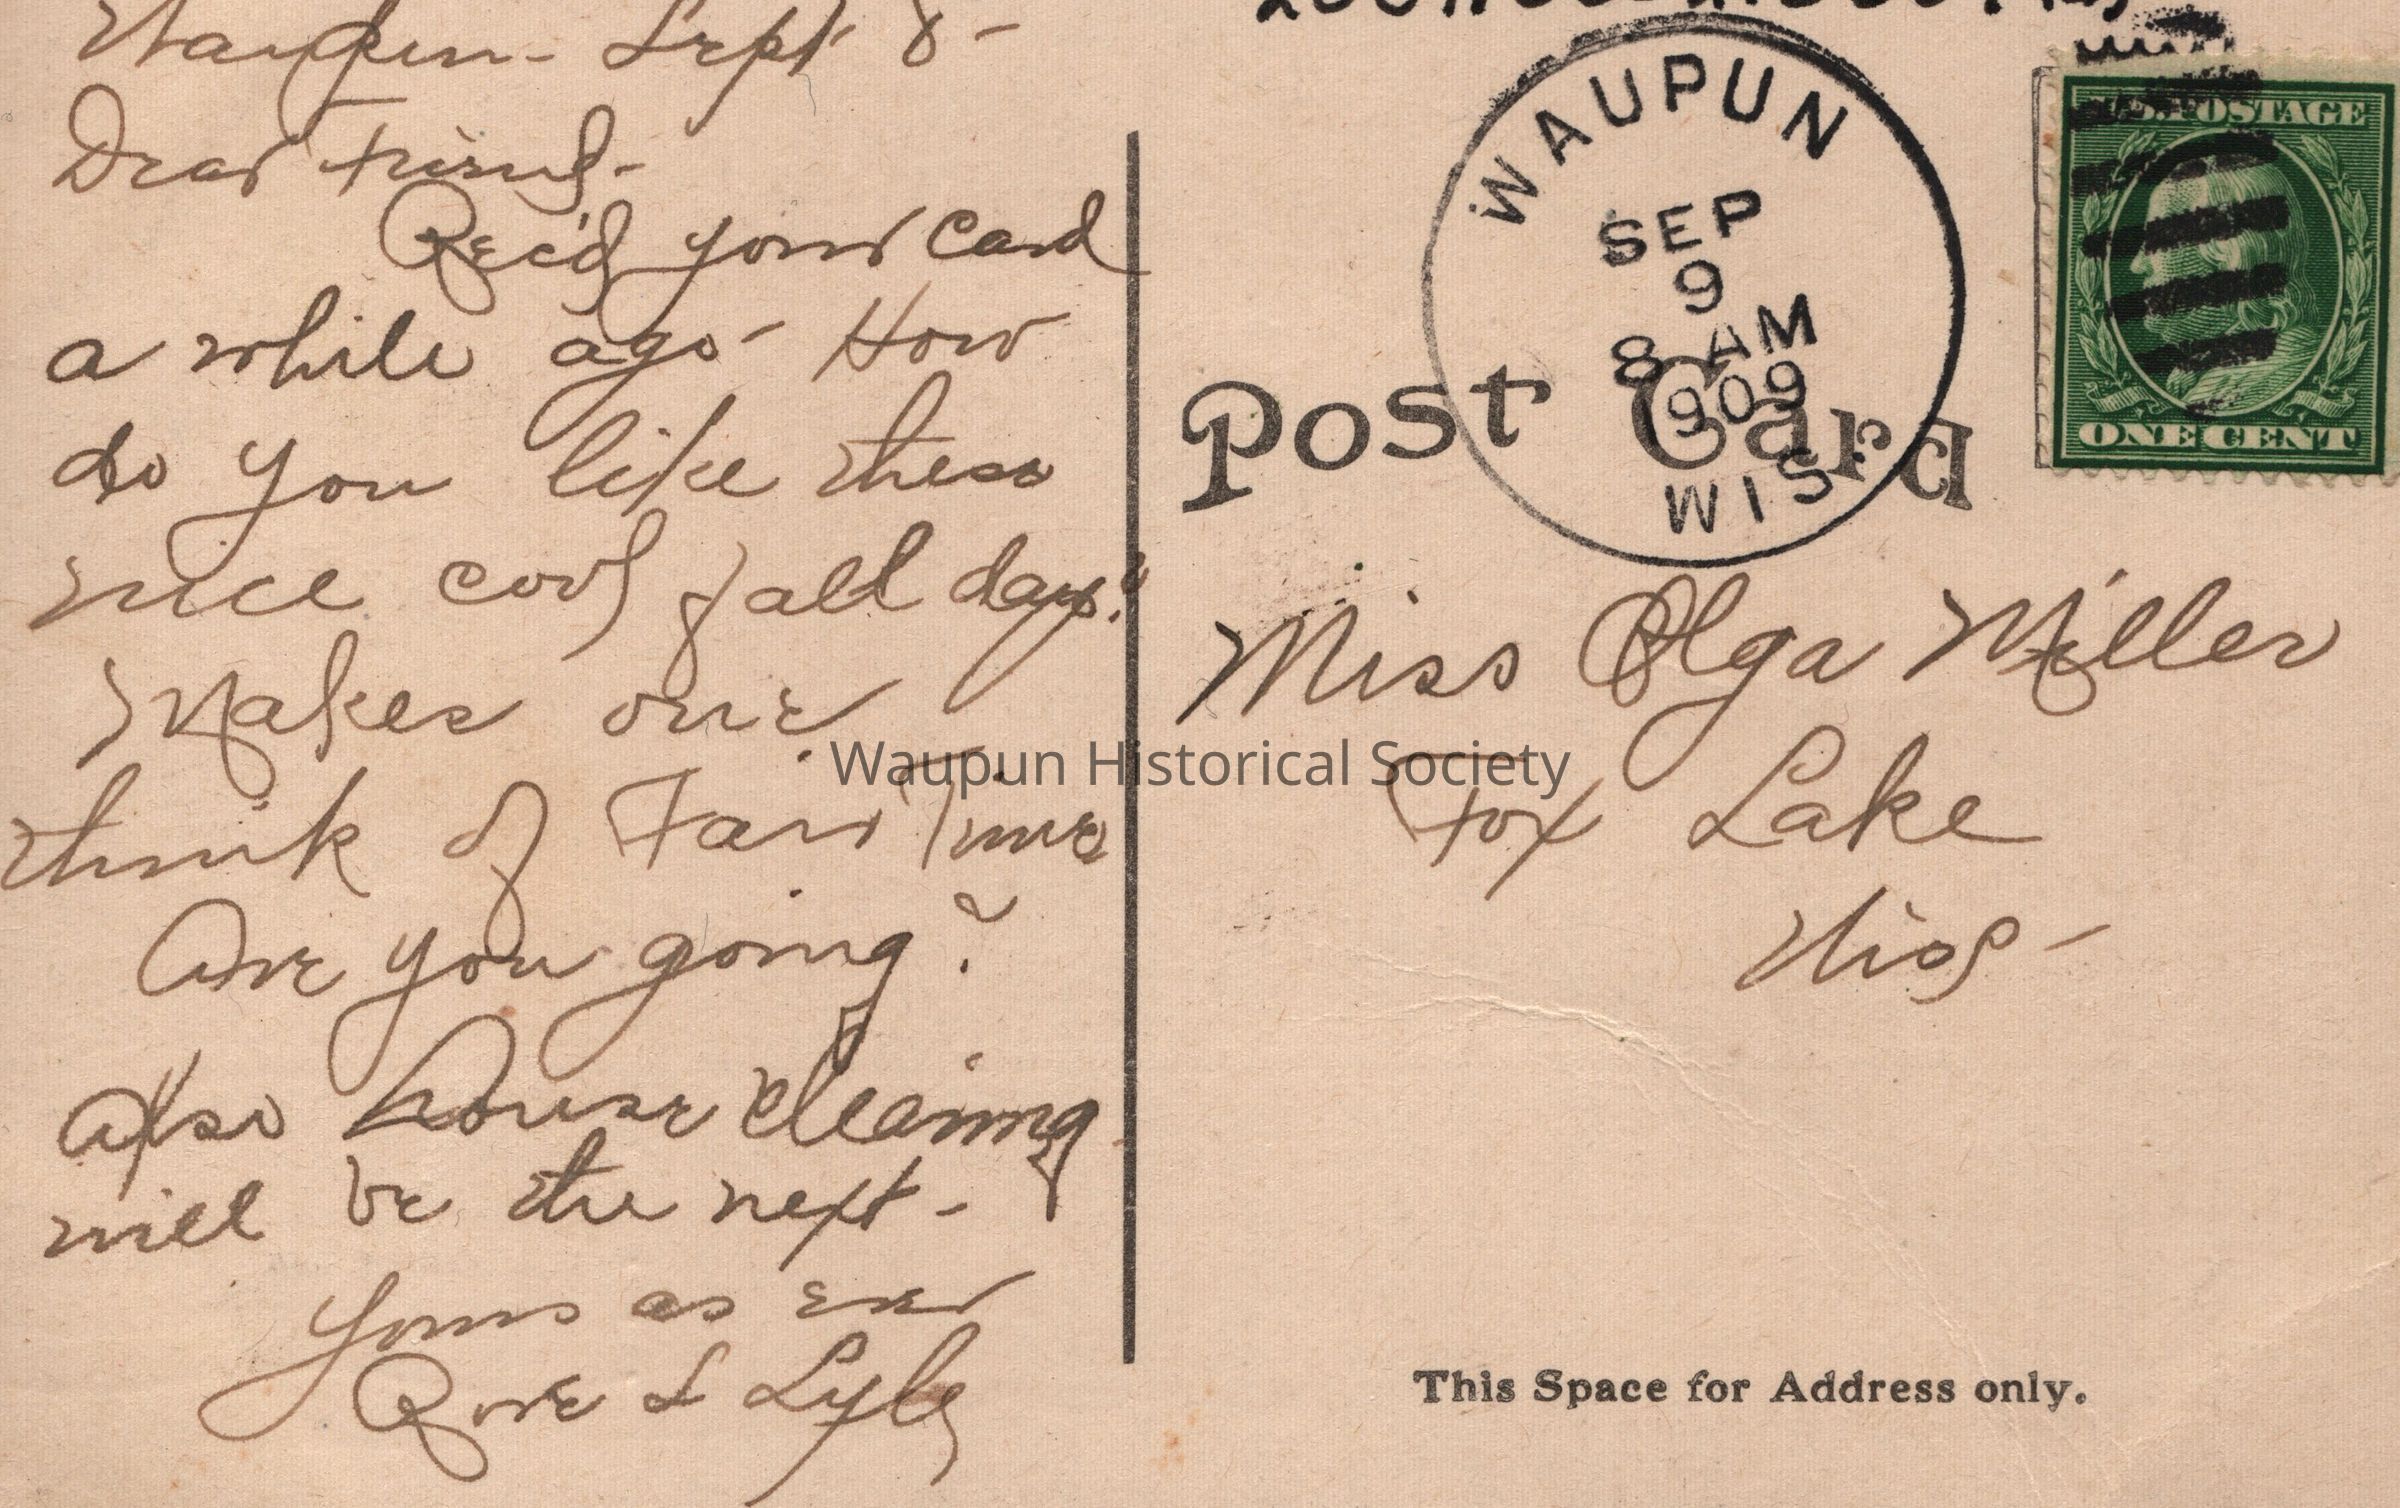 Waupun - Sept 8 -
Dear Friend -
Rec'd your card
a while ago - How
do you like these
nice cool fall days?
Makes one
think of Fair Time
Are you going?
Also house cleaning
will be the next -
Yours as ever
Lyle
WAUPUN
SEP
9
8 AM
1909
WIS.
U.S. POSTAGE
ONE CENT
Post Card
Miss Olga Miller
Fox Lake
Wis -
Waupun Historical Society
This Space for Address only.